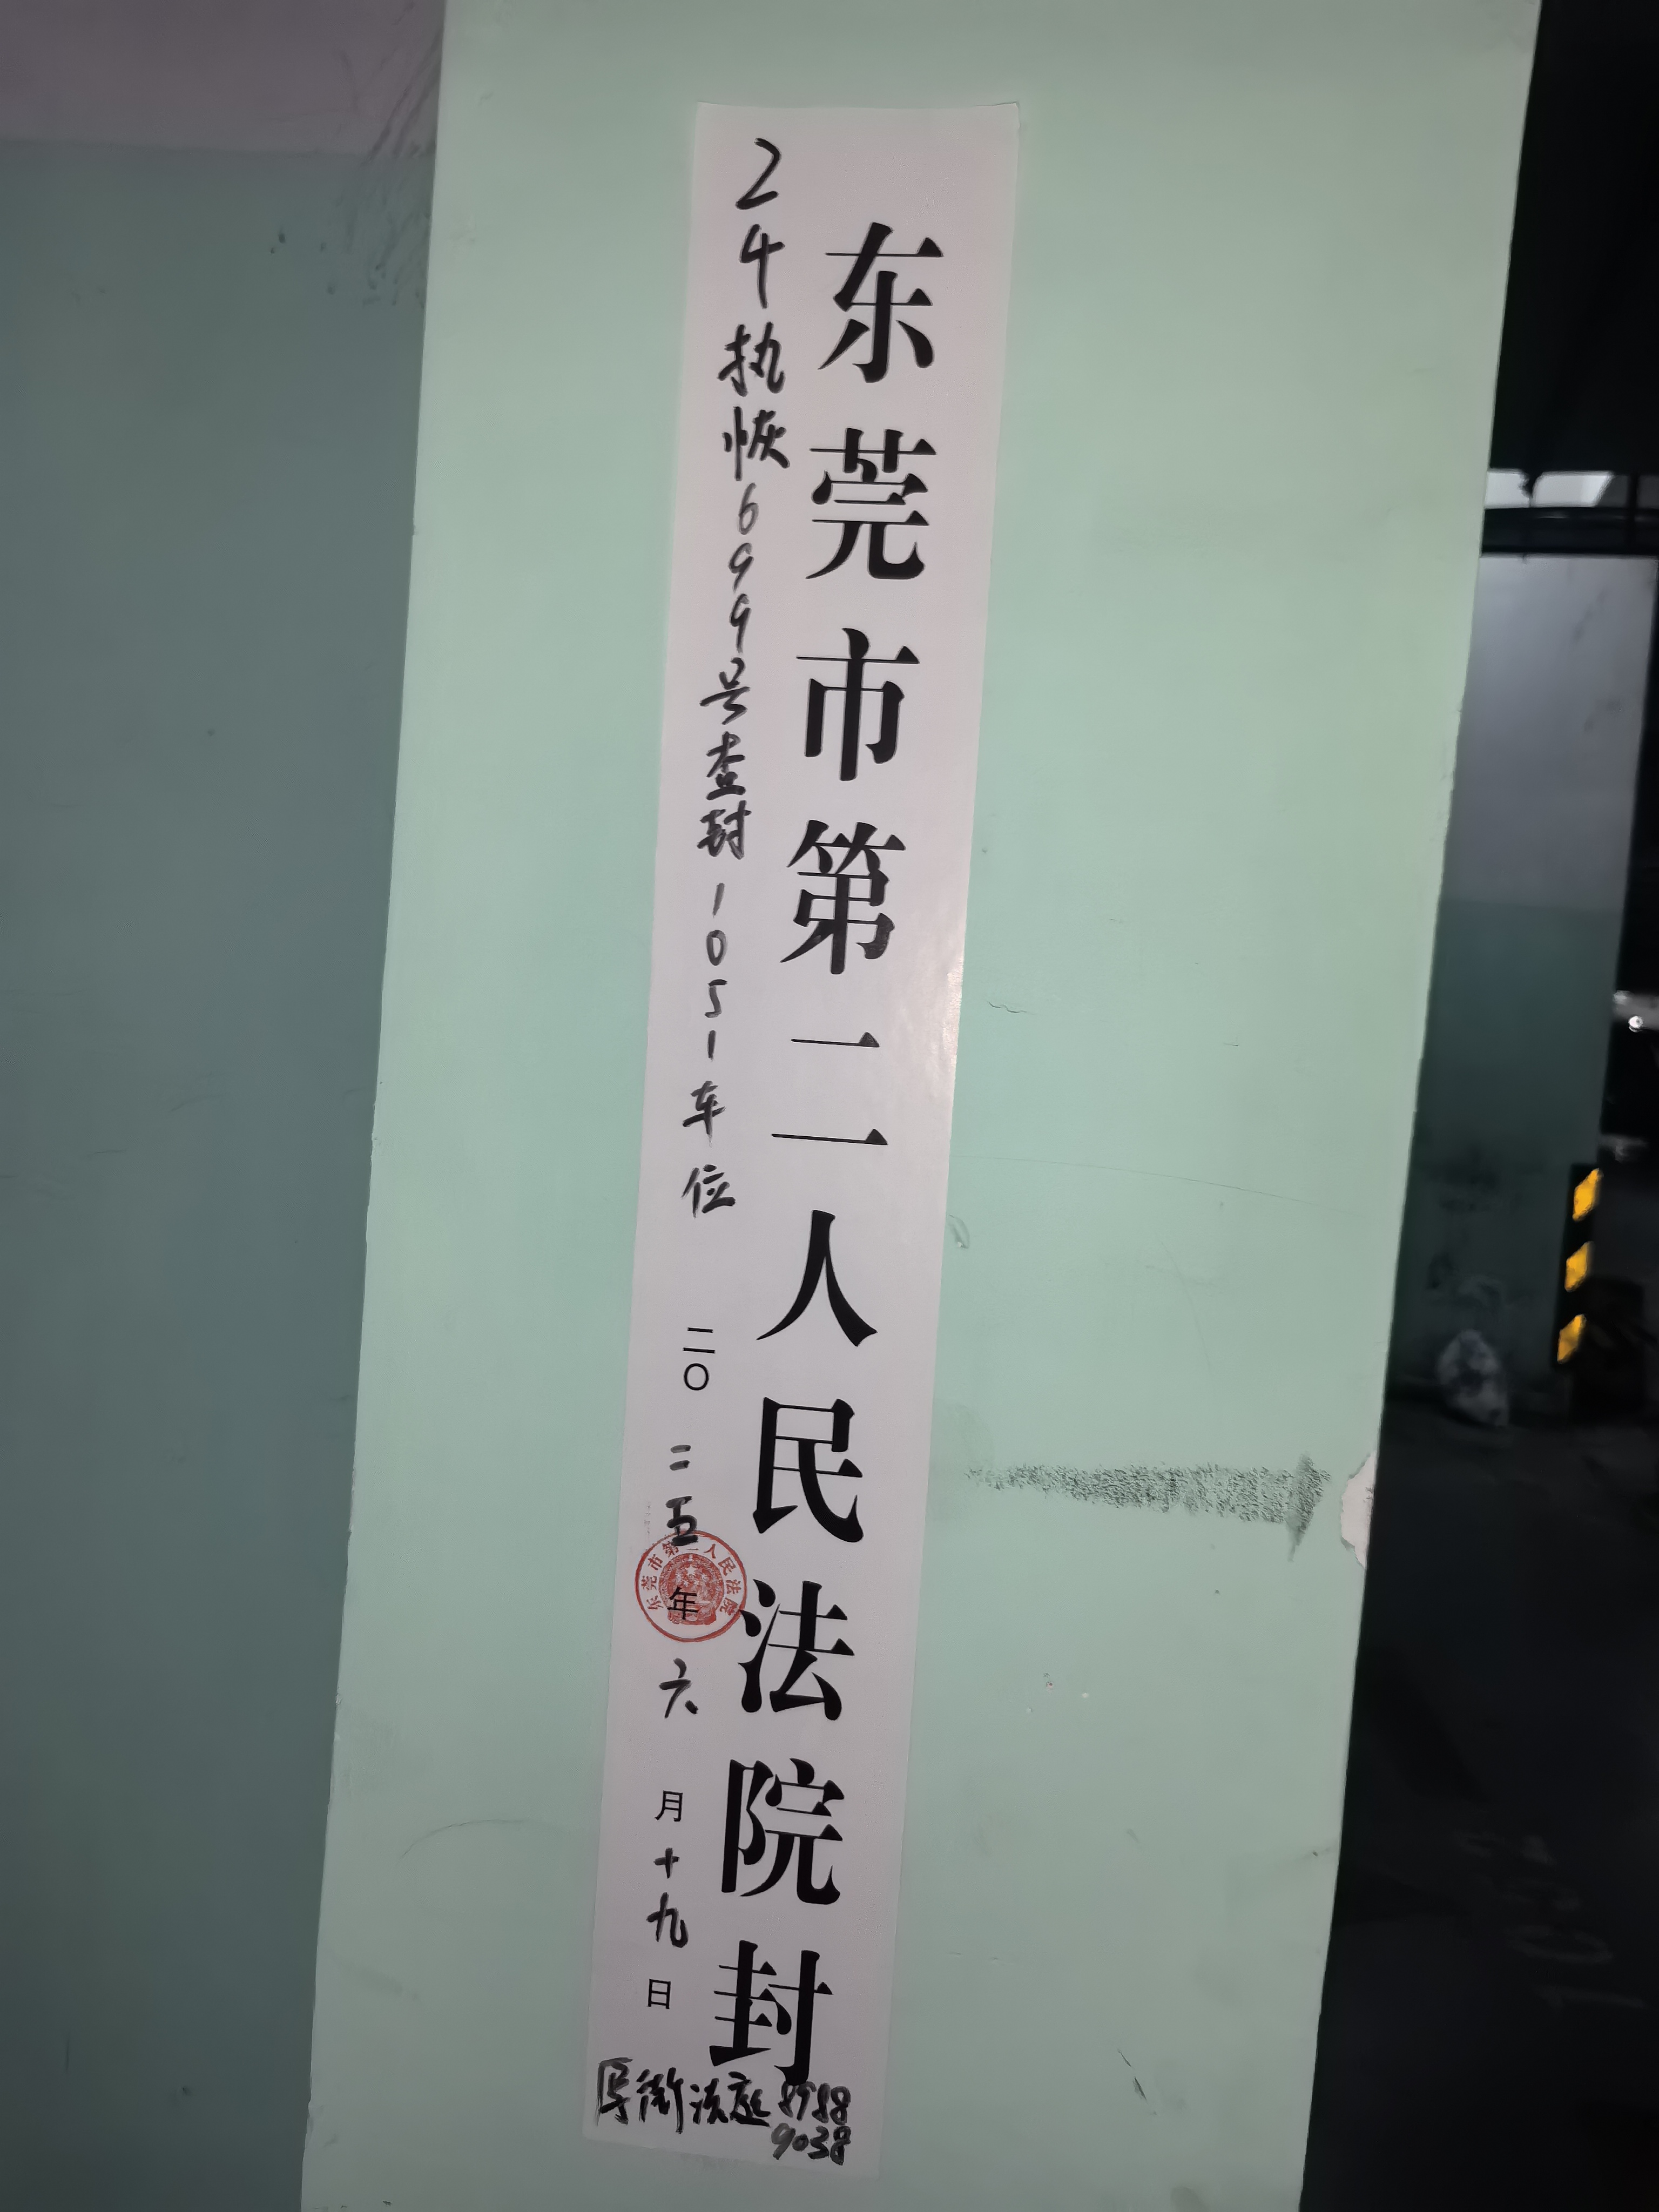 东莞市第二人民法院封
24执恢699号查封1051车位
二〇二五年六月十九日
东莞市第二人民法院
厚街法庭 8988
9038